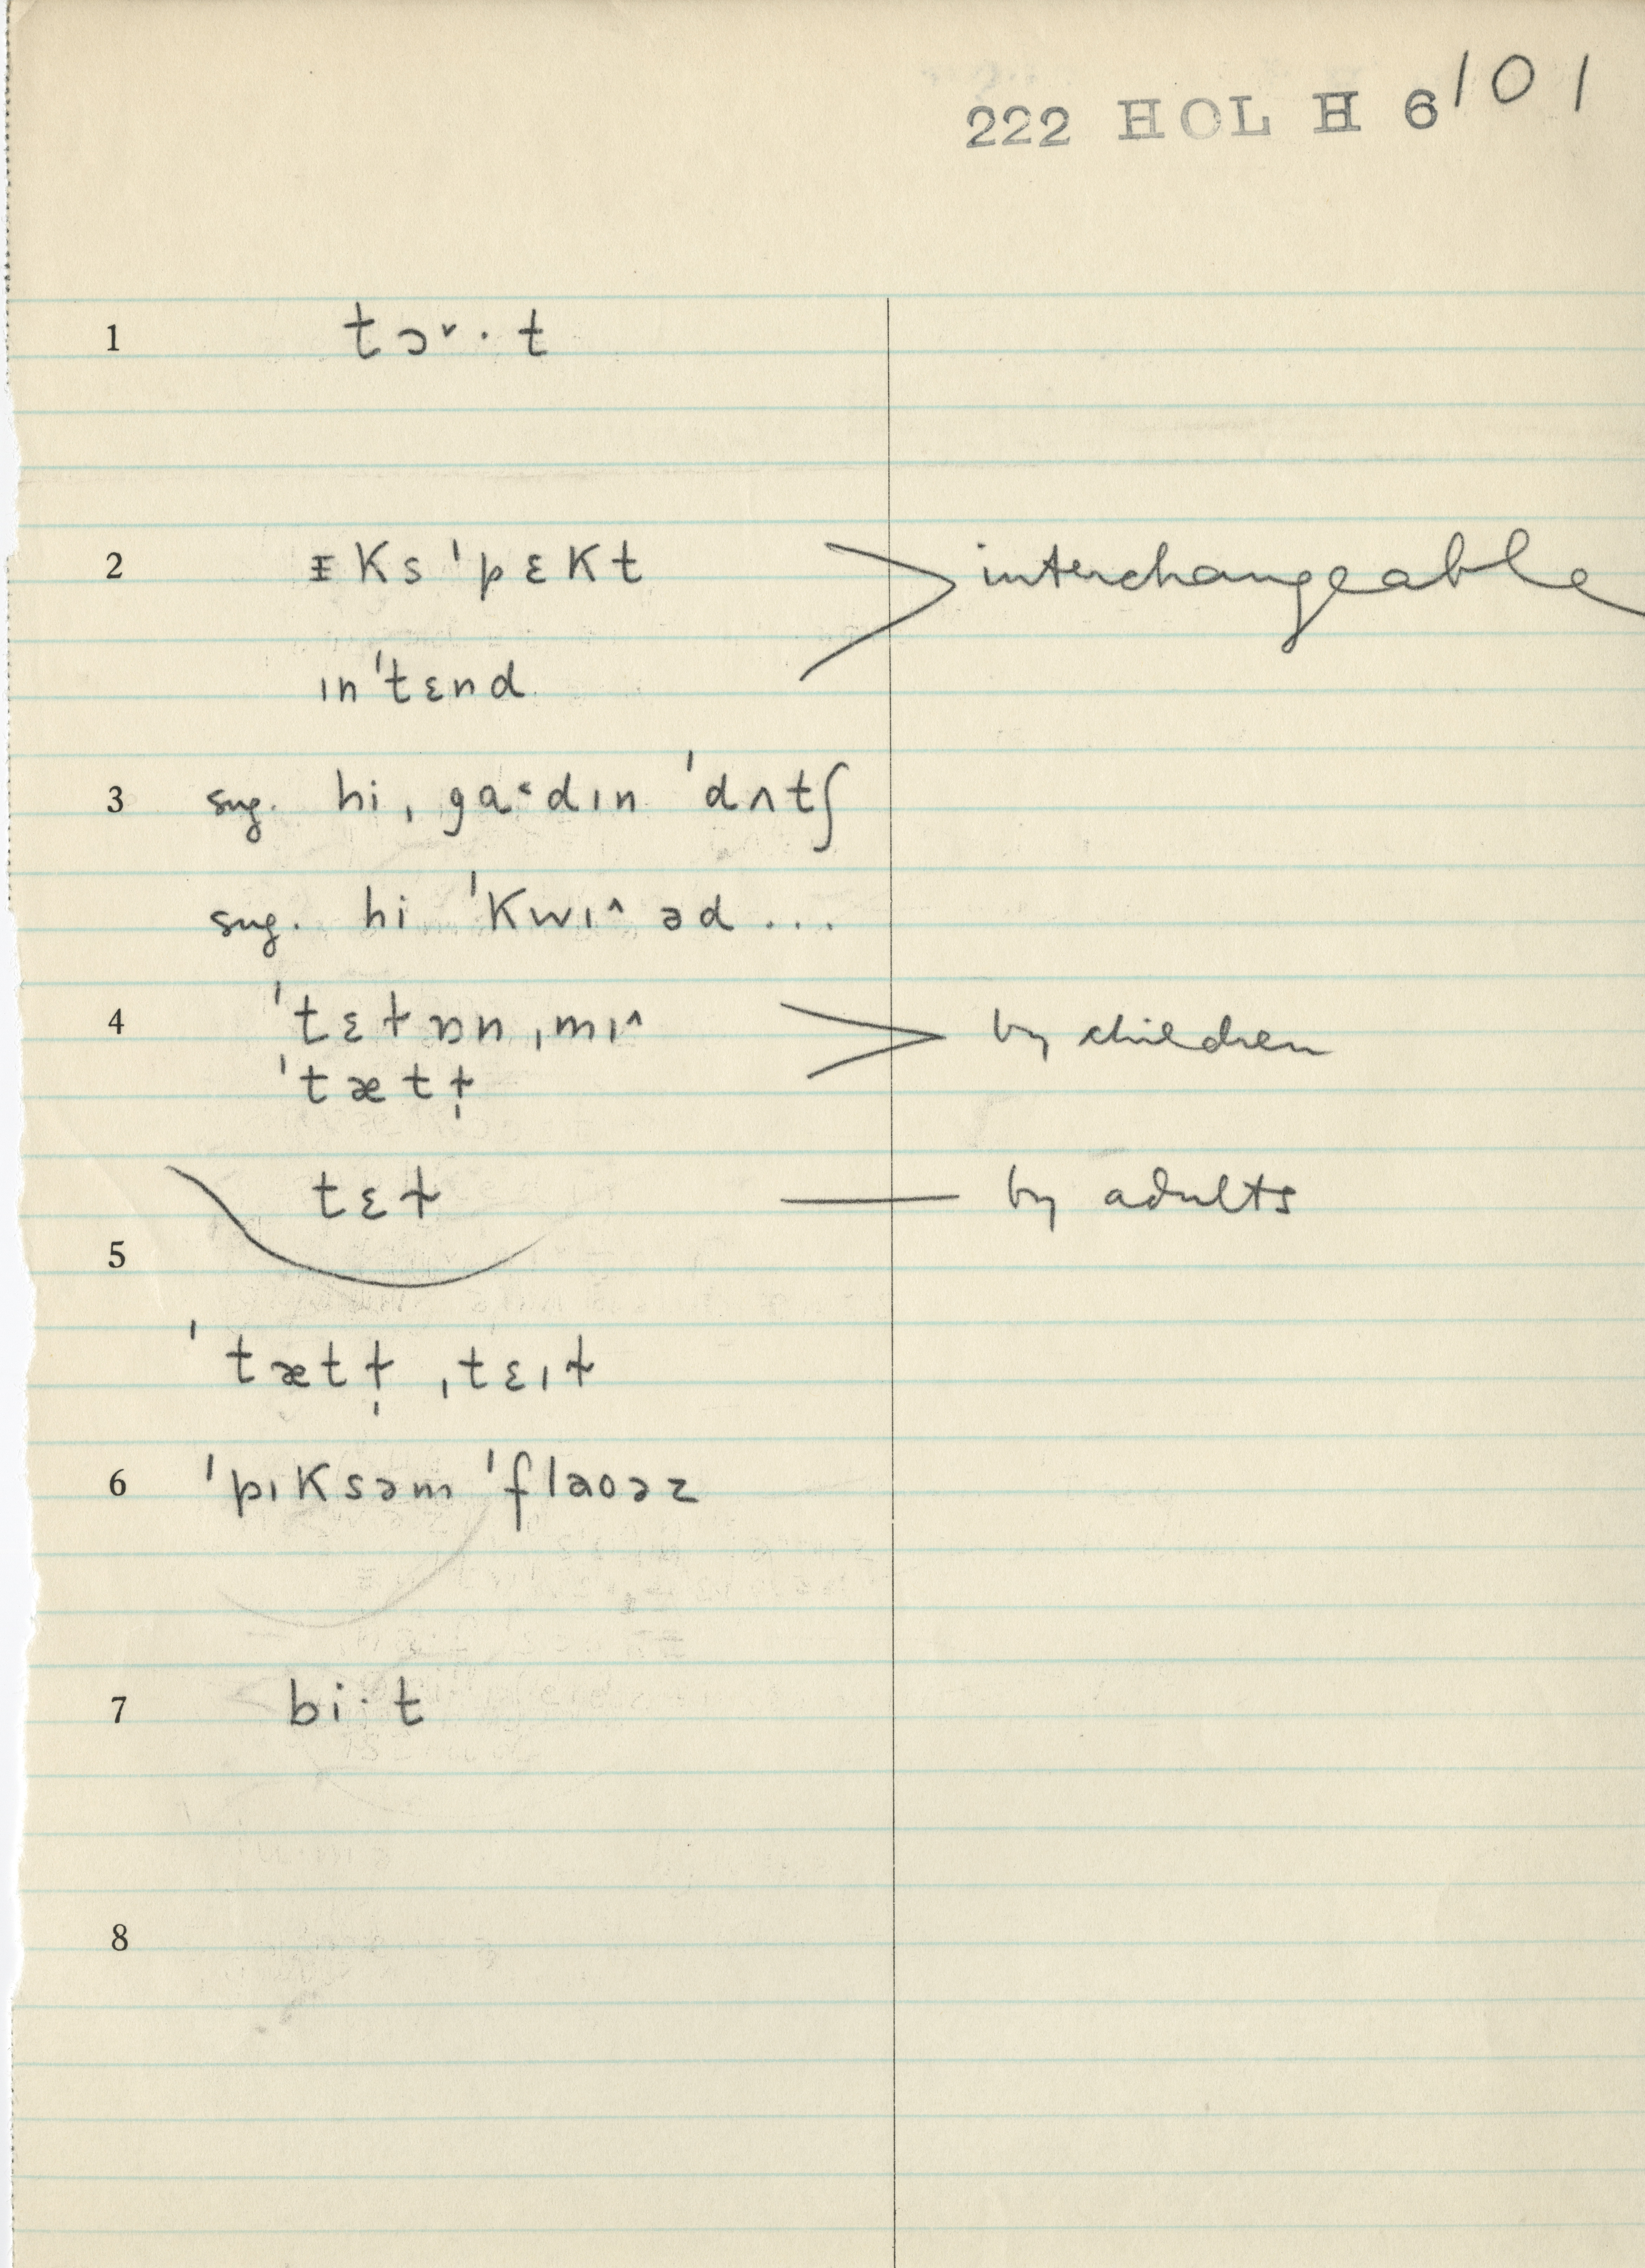 222 HOL H 6 101
1 tɔ˅·t
2 ᵻks ˈpɛkt interchangeable
ɪn ˈtɛnd
3 sug. hi ˌga˂dɪn ˈdʌtʃ
sug. hi ˈkwɪ^ əd ...
4 ˈtɛɫɒn ˌmɪ^ by children
ˈtætɫ̩
tɛɫ by adults
5
ˈtætɫ̩ ˌtɛɪɫ
6 ˈpɪksəm ˈflaoəz
7 bi·t
8